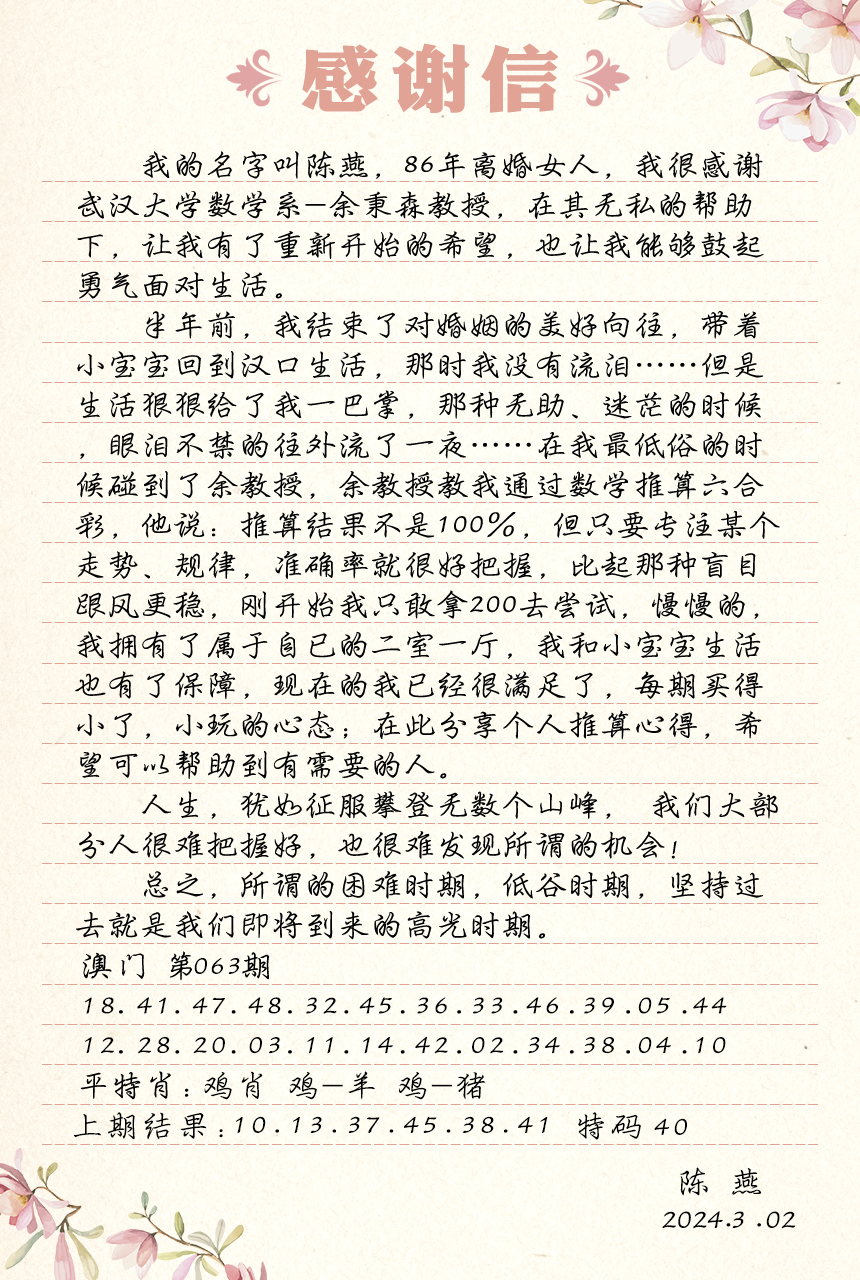 感谢信
我的名字叫陈燕，86年离婚女人，我很感谢
武汉大学数学系—余秉森教授，在其无私的帮助
下，让我有了重新开始的希望，也让我能够鼓起
勇气面对生活。
半年前，我结束了对婚姻的美好向往，带着
小宝宝回到汉口生活，那时我没有流泪……但是
生活狠狠给了我一巴掌，那种无助、迷茫的时候
，眼泪不禁的往外流了一夜……在我最低俗的时
候碰到了余教授，余教授教我通过数学推算六合
彩，他说：推算结果不是100%，但只要专注某个
走势、规律，准确率就很好把握，比起那种盲目
跟风更稳，刚开始我只敢拿200去尝试，慢慢的，
我拥有了属于自已的二室一厅，我和小宝宝生活
也有了保障，现在的我已经很满足了，每期买得
小了，小玩的心态；在此分享个人推算心得，希
望可以帮助到有需要的人。
人生，犹如征服攀登无数个山峰， 我们大部
分人很难把握好，也很难发现所谓的机会！
总之，所谓的困难时期，低谷时期，坚持过
去就是我们即将到来的高光时期。
澳门 第063期
18.41.47.48.32.45.36.33.46.39.05.44
12.28.20.03.11.14.42.02.34.38.04.10
平特肖：鸡肖 鸡—羊 鸡—猪
上期结果：10.13.37.45.38.41 特码 40
陈 燕
2024.3.02